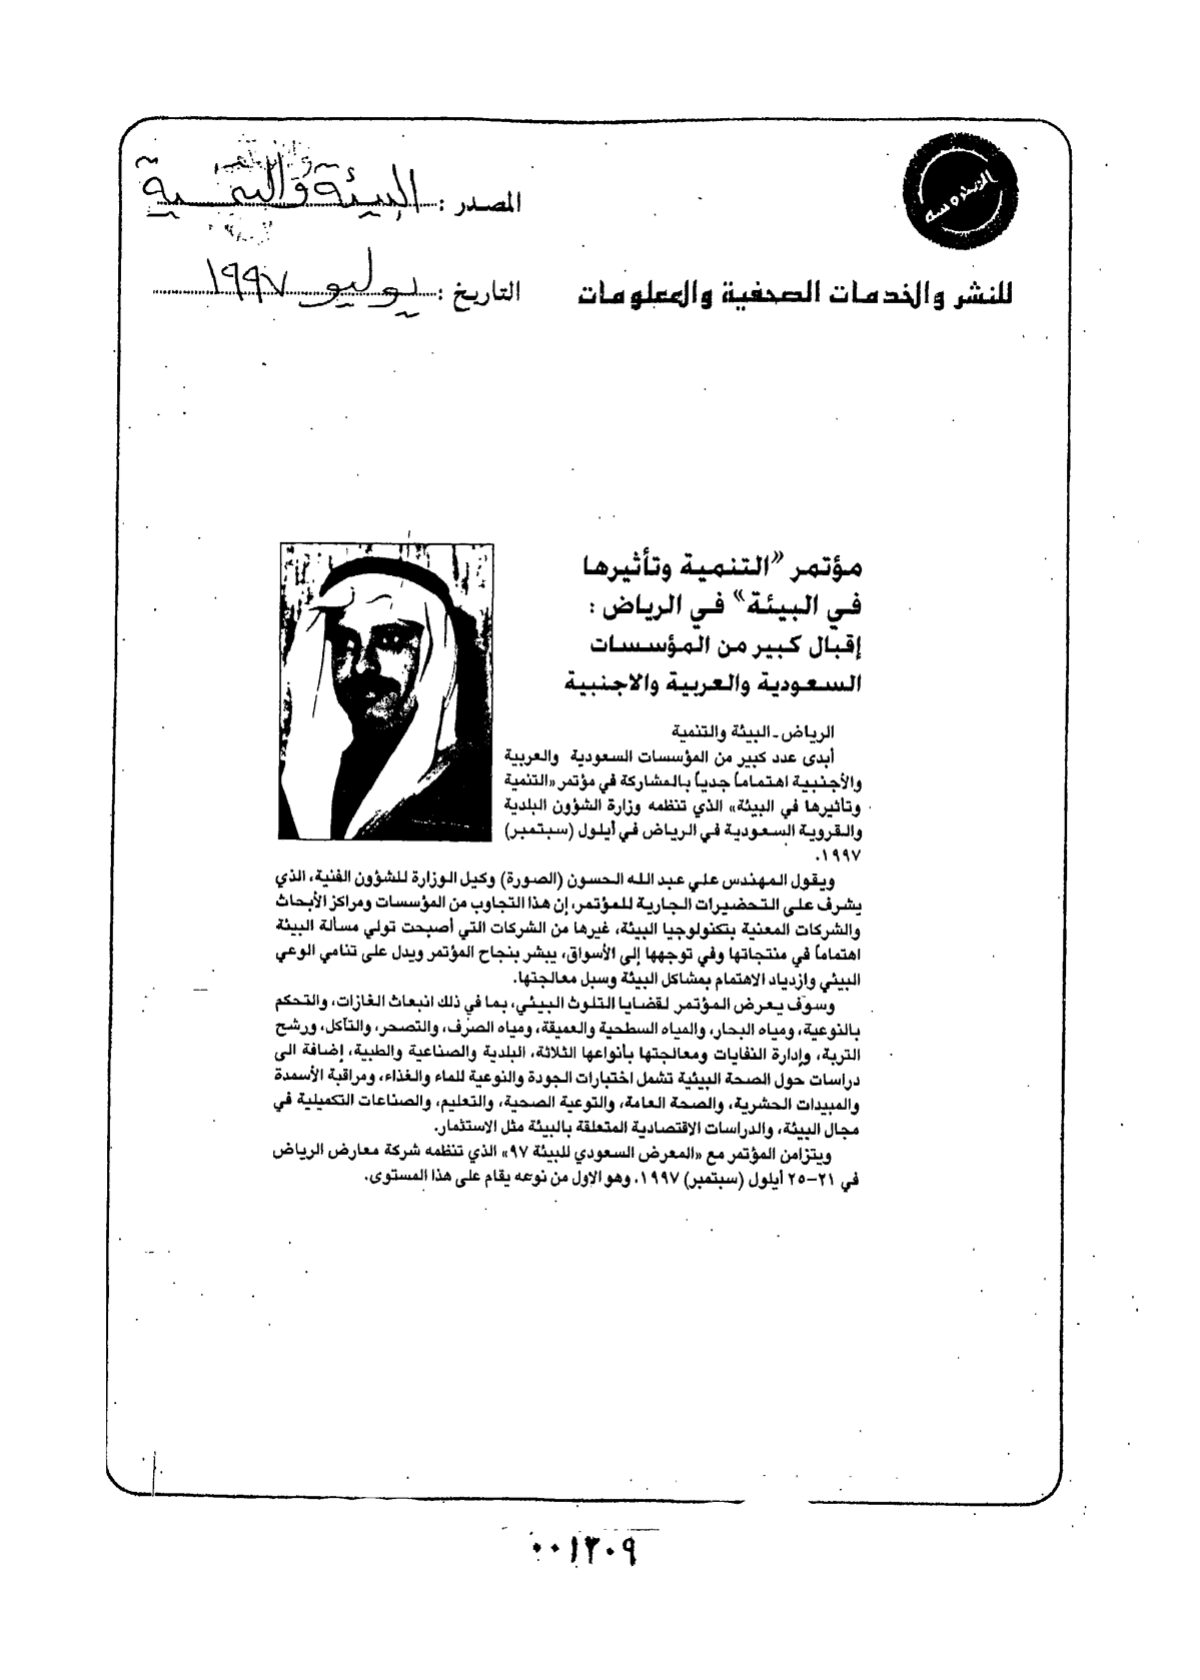 المصدر : البيئة والتنمية
للنشر والخدمات الصحفية والمعلومات
التاريخ : يوليو ١٩٩٧
مؤتمر «التنمية وتأثيرها
في البيئة» في الرياض :
إقبال كبير من المؤسسات
السعودية والعربية والاجنبية
الرياض ـ البيئة والتنمية
أبدى عدد كبير من المؤسسات السعودية والعربية
والأجنبية اهتماماً جدياً بالمشاركة في مؤتمر «التنمية
وتأثيرها في البيئة» الذي تنظمه وزارة الشؤون البلدية
والقروية السعودية في الرياض في أيلول (سبتمبر)
١٩٩٧.
ويقول المهندس علي عبد الله الحسون (الصورة) وكيل الوزارة للشؤون الفنية، الذي
يشرف على التحضيرات الجارية للمؤتمر، إن هذا التجاوب من المؤسسات ومراكز الأبحاث
والشركات المعنية بتكنولوجيا البيئة، غيرها من الشركات التي أصبحت تولي مسألة البيئة
اهتماماً في منتجاتها وفي توجهها إلى الأسواق، يبشر بنجاح المؤتمر ويدل على تنامي الوعي
البيئي وازدياد الاهتمام بمشاكل البيئة وسبل معالجتها.
وسوف يعرض المؤتمر لقضايا التلوث البيئي، بما في ذلك انبعاث الغازات، والتحكم
بالنوعية، ومياه البحار، والمياه السطحية والعميقة، ومياه الصرف، والتصحر، والتآكل، ورشح
التربة، وإدارة النفايات ومعالجتها بأنواعها الثلاثة، البلدية والصناعية والطبية، إضافة الى
دراسات حول الصحة البيئية تشمل اختبارات الجودة والنوعية للماء والغذاء، ومراقبة الأسمدة
والمبيدات الحشرية، والصحة العامة، والتوعية الصحية، والتعليم، والصناعات التكميلية في
مجال البيئة، والدراسات الاقتصادية المتعلقة بالبيئة مثل الاستثمار.
ويتزامن المؤتمر مع «المعرض السعودي للبيئة ٩٧» الذي تنظمه شركة معارض الرياض
في ٢١–٢٥ أيلول (سبتمبر) ١٩٩٧. وهو الاول من نوعه يقام على هذا المستوى.
٠٠١٣٠٩